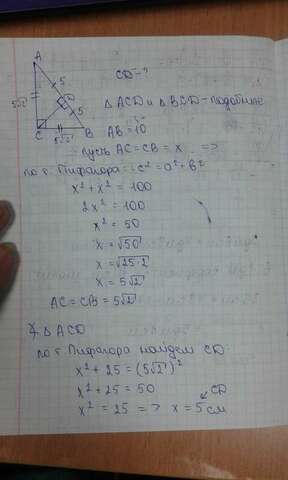 A
CD - ?
5
5√2
D
△ ACD и △ BCD - подобные
5
C
B
AB = 10
пусть AC = CB = x =>
по т. Пифагора: c² = a² + b²
x² + x² = 100
2x² = 100
x² = 50
x = √50
x = √25·2
x = 5√2
AC = CB = 5√2
△ ACD
по т Пифагора найдем CD:
x² + 25 = (5√2)²
x² + 25 = 50
CD
x² = 25 => x = 5 см